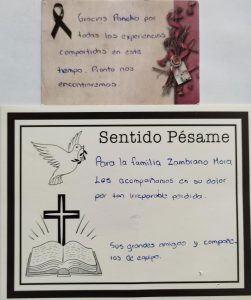 Gracias Poncho por
todas las experiencias
compartidas en este
tiempo. Pronto nos
encontraremos
Sentido Pésame
Para la familia Zambrano Mora
Los acompañamos en su dolor
por tan irreparable pérdida.
Sus grandes amigos y compañe-
ros de equipo.